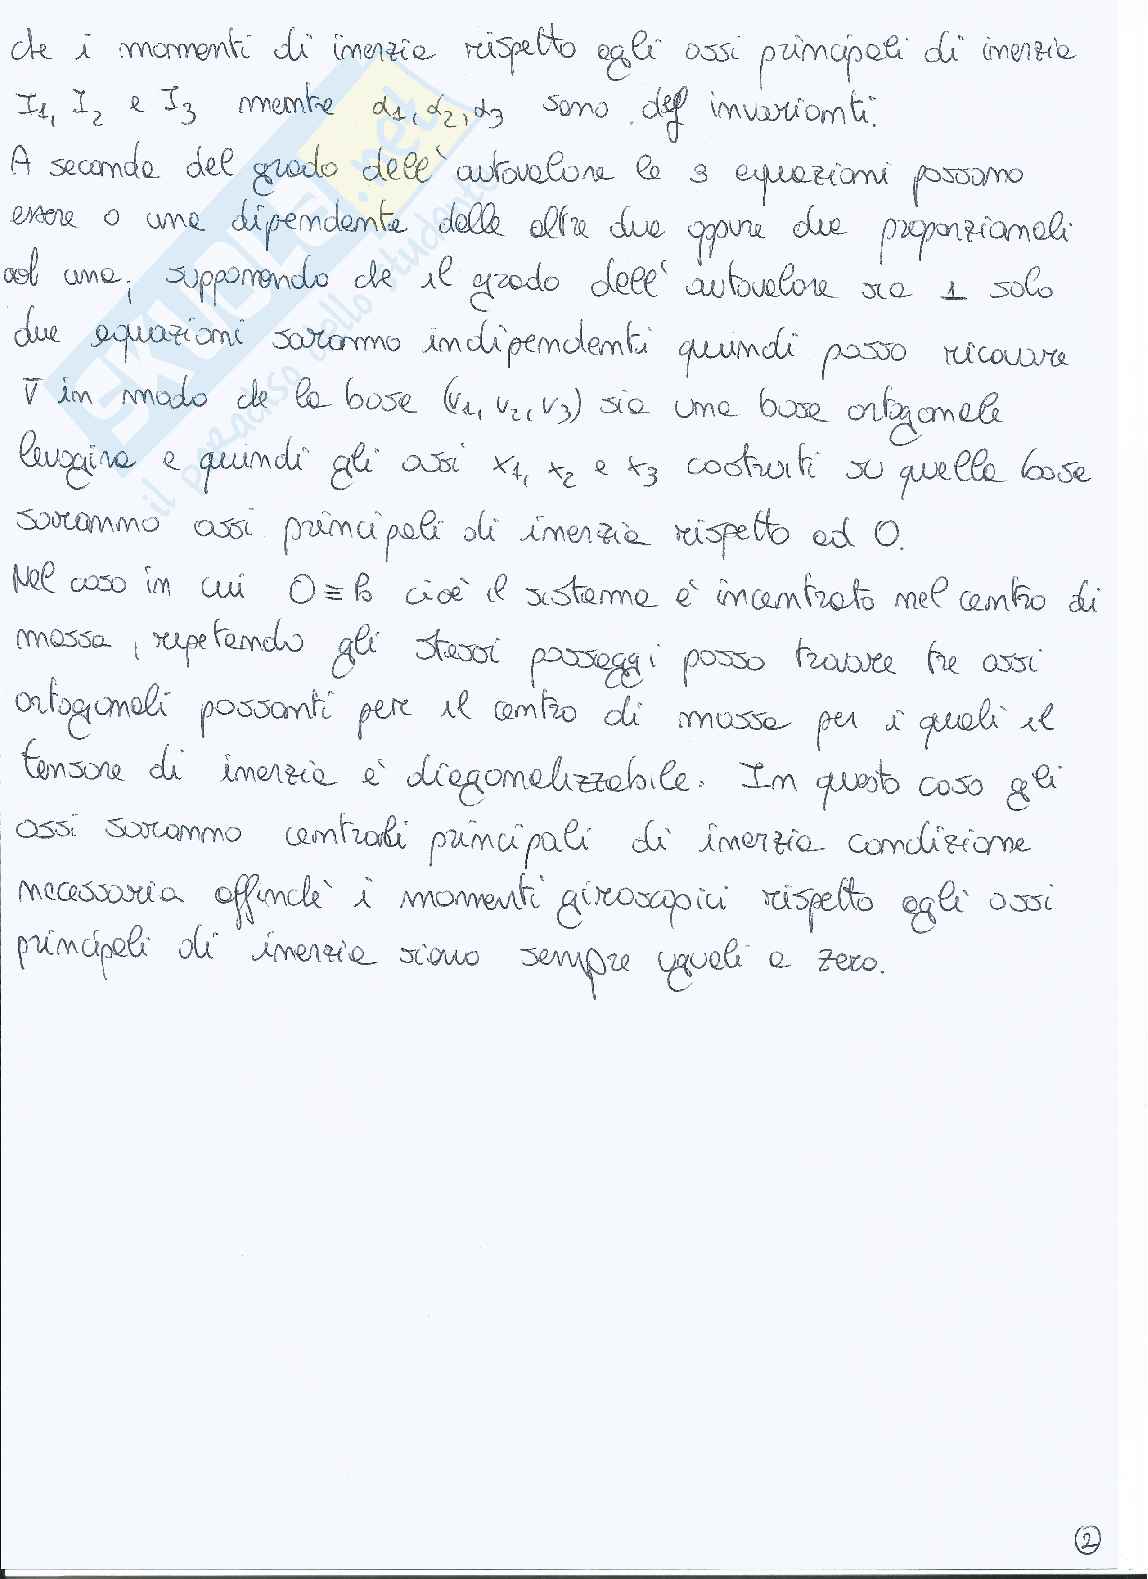 che i momenti di inerzia rispetto agli assi principali di inerzia
I1, I2 e I3 mentre α1, α2, α3 sono def invarianti.
A seconda del grado dell'autovalore le 3 equazioni possono
essere o una dipendente dalle altre due oppure due proporzionali
ad una; supponendo che il grado dell'autovalore sia 1 solo
due equazioni saranno indipendenti quindi posso ricavare
v̄ in modo che la base (v1, v2, v3) sia una base ortogonale
levogira e quindi gli assi x1, x2 e x3 costruiti su quella base
saranno assi principali di inerzia rispetto ad O.
Nel caso in cui O ≡ P0 cioè il sistema è incentrato nel centro di
massa, ripetendo gli stessi passaggi posso trovare tre assi
ortogonali passanti per il centro di massa per i quali il
tensore di inerzia è diagonalizzabile. In questo caso gli
assi saranno centrali principali di inerzia condizione
necessaria affinchè i momenti giroscopici rispetto agli assi
principali di inerzia siano sempre uguali a zero.
2
SKUOLA.net
il paradiso dello studente